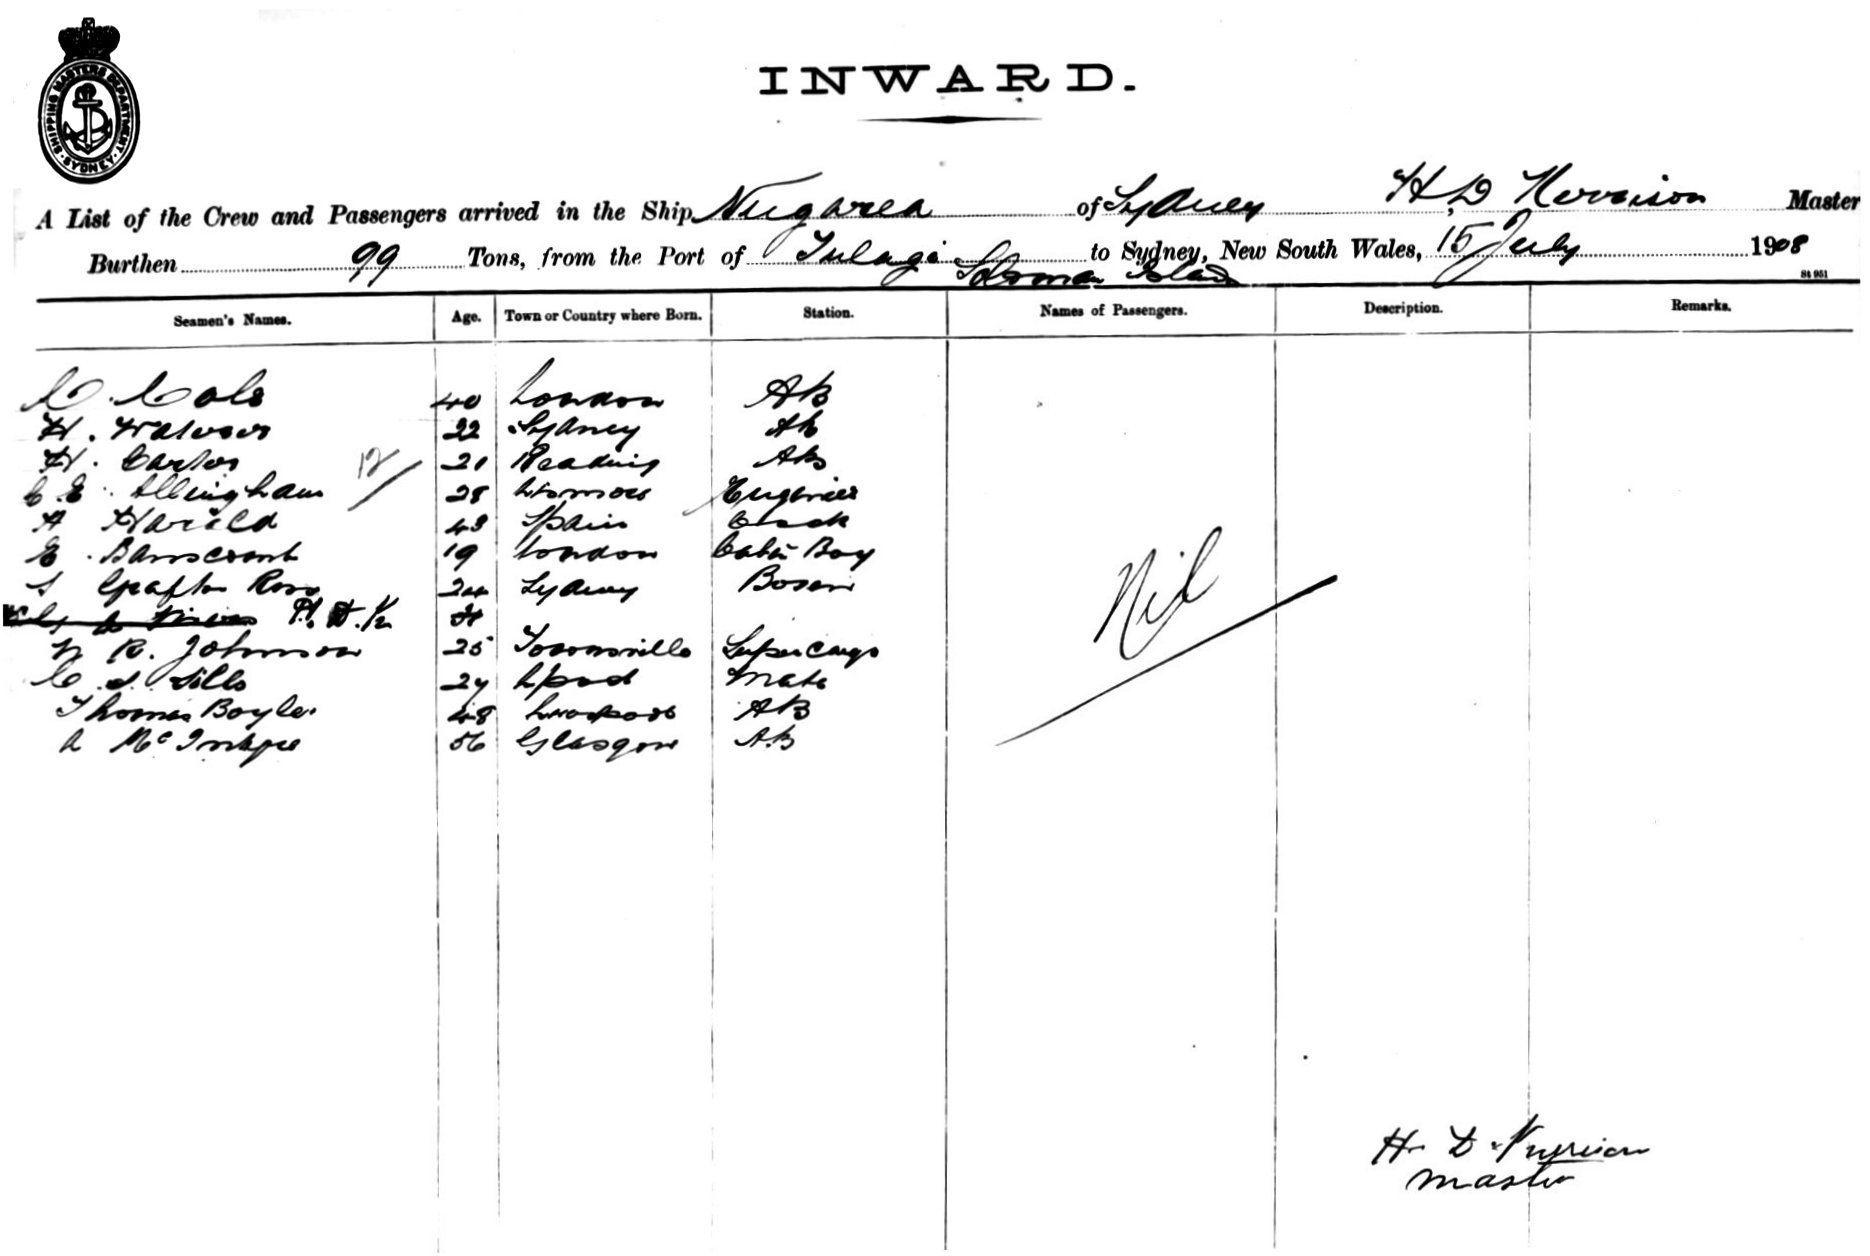 SHIPPING MASTERS DEPARTMENT · SYDNEY ·
INWARD.
A List of the Crew and Passengers arrived in the Ship Nugarea of Sydney, H. D Master
Burthen 99 Tons, from the Port of Tulagi Solomon Islands to Sydney, New South Wales, 15 July 1908
St 951
Seamen's Names. Age. Town or Country where Born. Station. Names of Passengers. Description. Remarks.
C. Cole 40 London AB
H. 22 Sydney AB
H. 21 Reading AB
12
C E Allingham 28 Engineer
A Harold 43 Spain Cook
E. 19 London Cabin Boy
S Grafton Ross 24 Sydney Bosun
R. Johnson 25 Townsville Supercargo
C. S. Sills 27 Lpool Mate
Thomas Boyle 48 Liverpool AB
A 56 Glasgow AB
Nil
H. D
Master